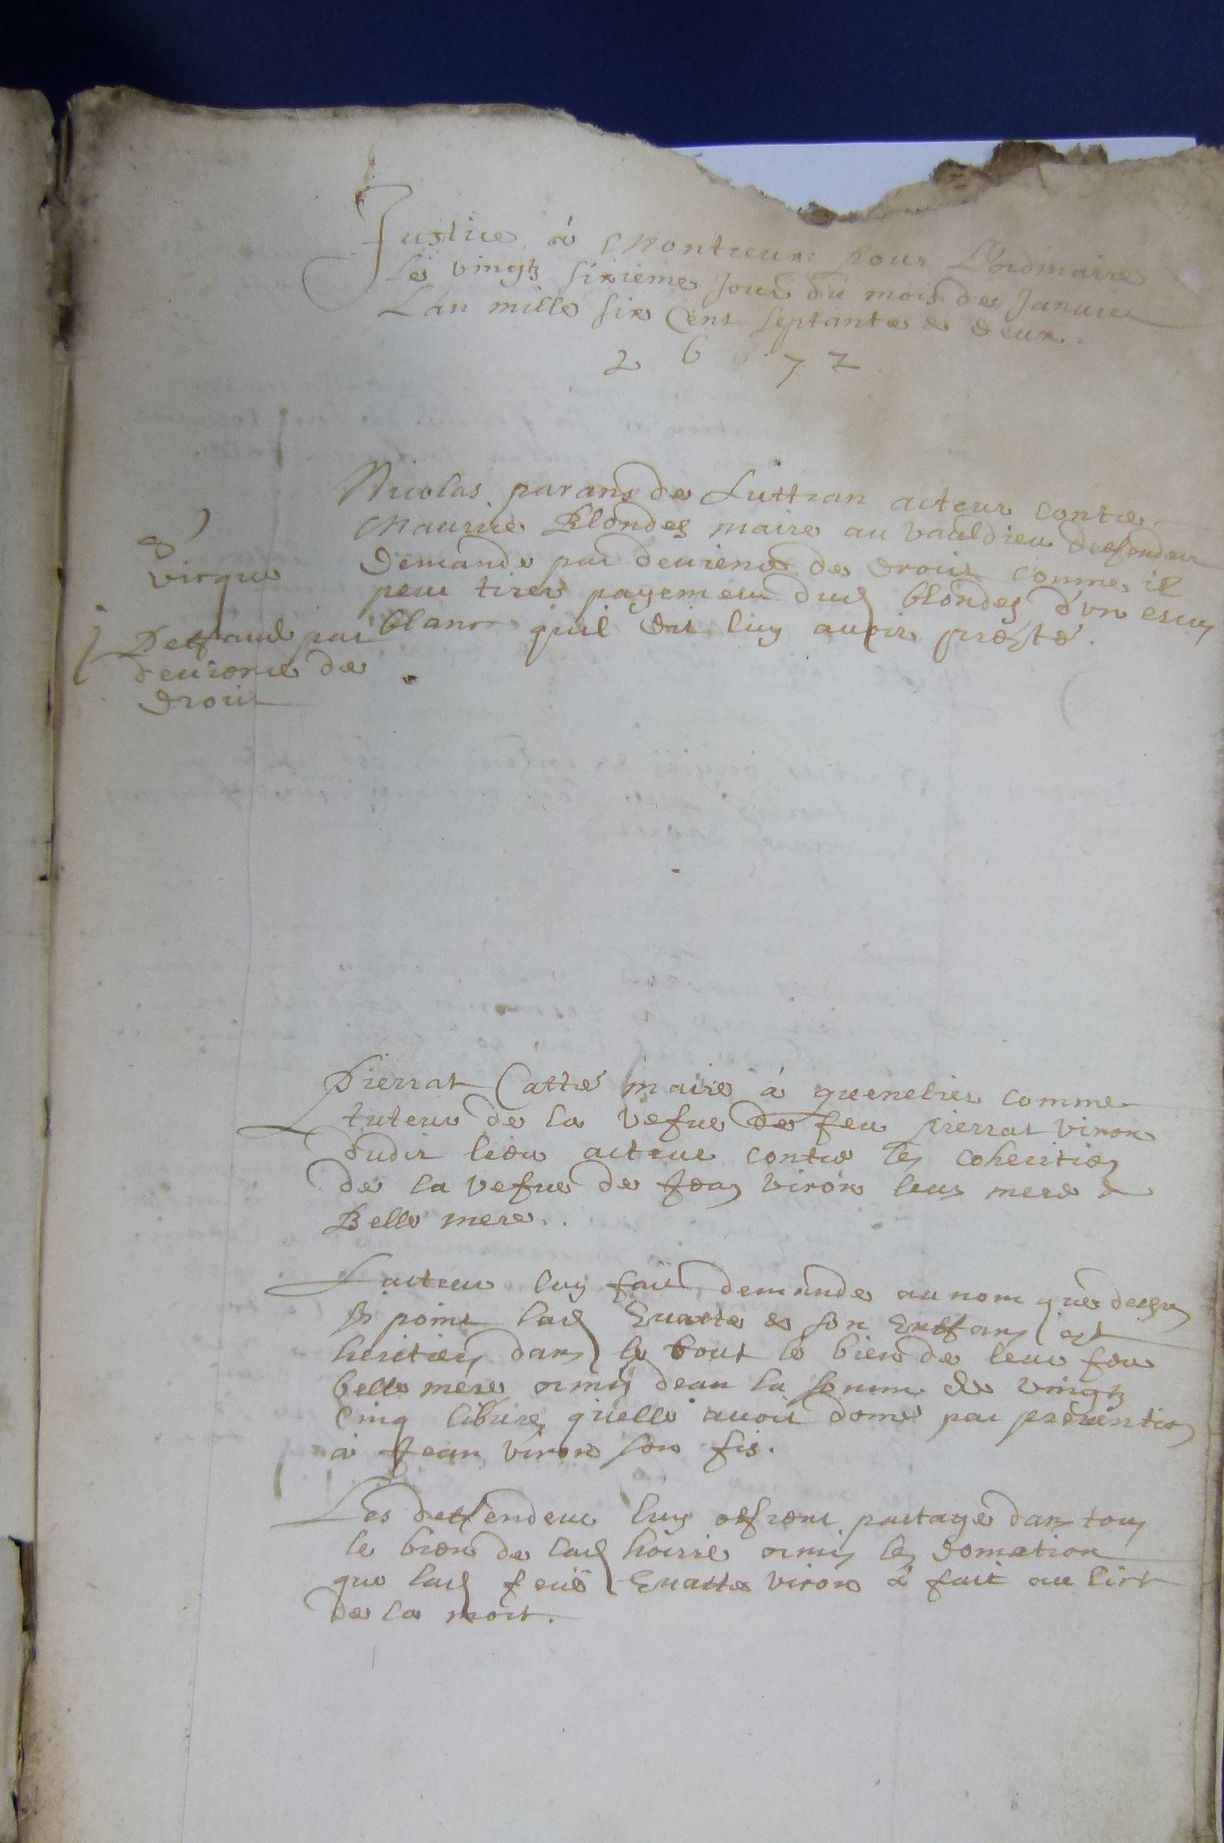 Justice à Montreux pour Lordinaire
Le vingt sixieme Jour du mois de Januier
Lan mille six Cent septante & deux.
2 6 7 2
Nicolas parans de Luttran acteur contre
Maurice Blondez maire au vauldieu deffendeur
Demande par deuiene de droit comme il
peut tirer payement dud blondez d'vn escuz
blanc quil dit luy auoir presté.
virque
Deffaud par
deuiene de
droit
Pierrat Cattré maire à quenelier comme
tuteur de la vefue de feu pierrat viron
dudit lieu acteur contre les coheritiez
de la vefue de Jean viron leur mere &
Belle mere.
Lacteur luy fait demande au nom que dessus
Si point lad Euatte & son Enffans est
heritiers dans le tout le bien de leur feue
belle mére ormis dean la somme de vingt
Cinq libure quelle auoit doné par
à Jean viron son fis.
Les deffendeur luy offrent partage dans tous
le bien de lad hoirie ormis les donnation
que lad feuë Euatte viron à fait au lict
de la mort.